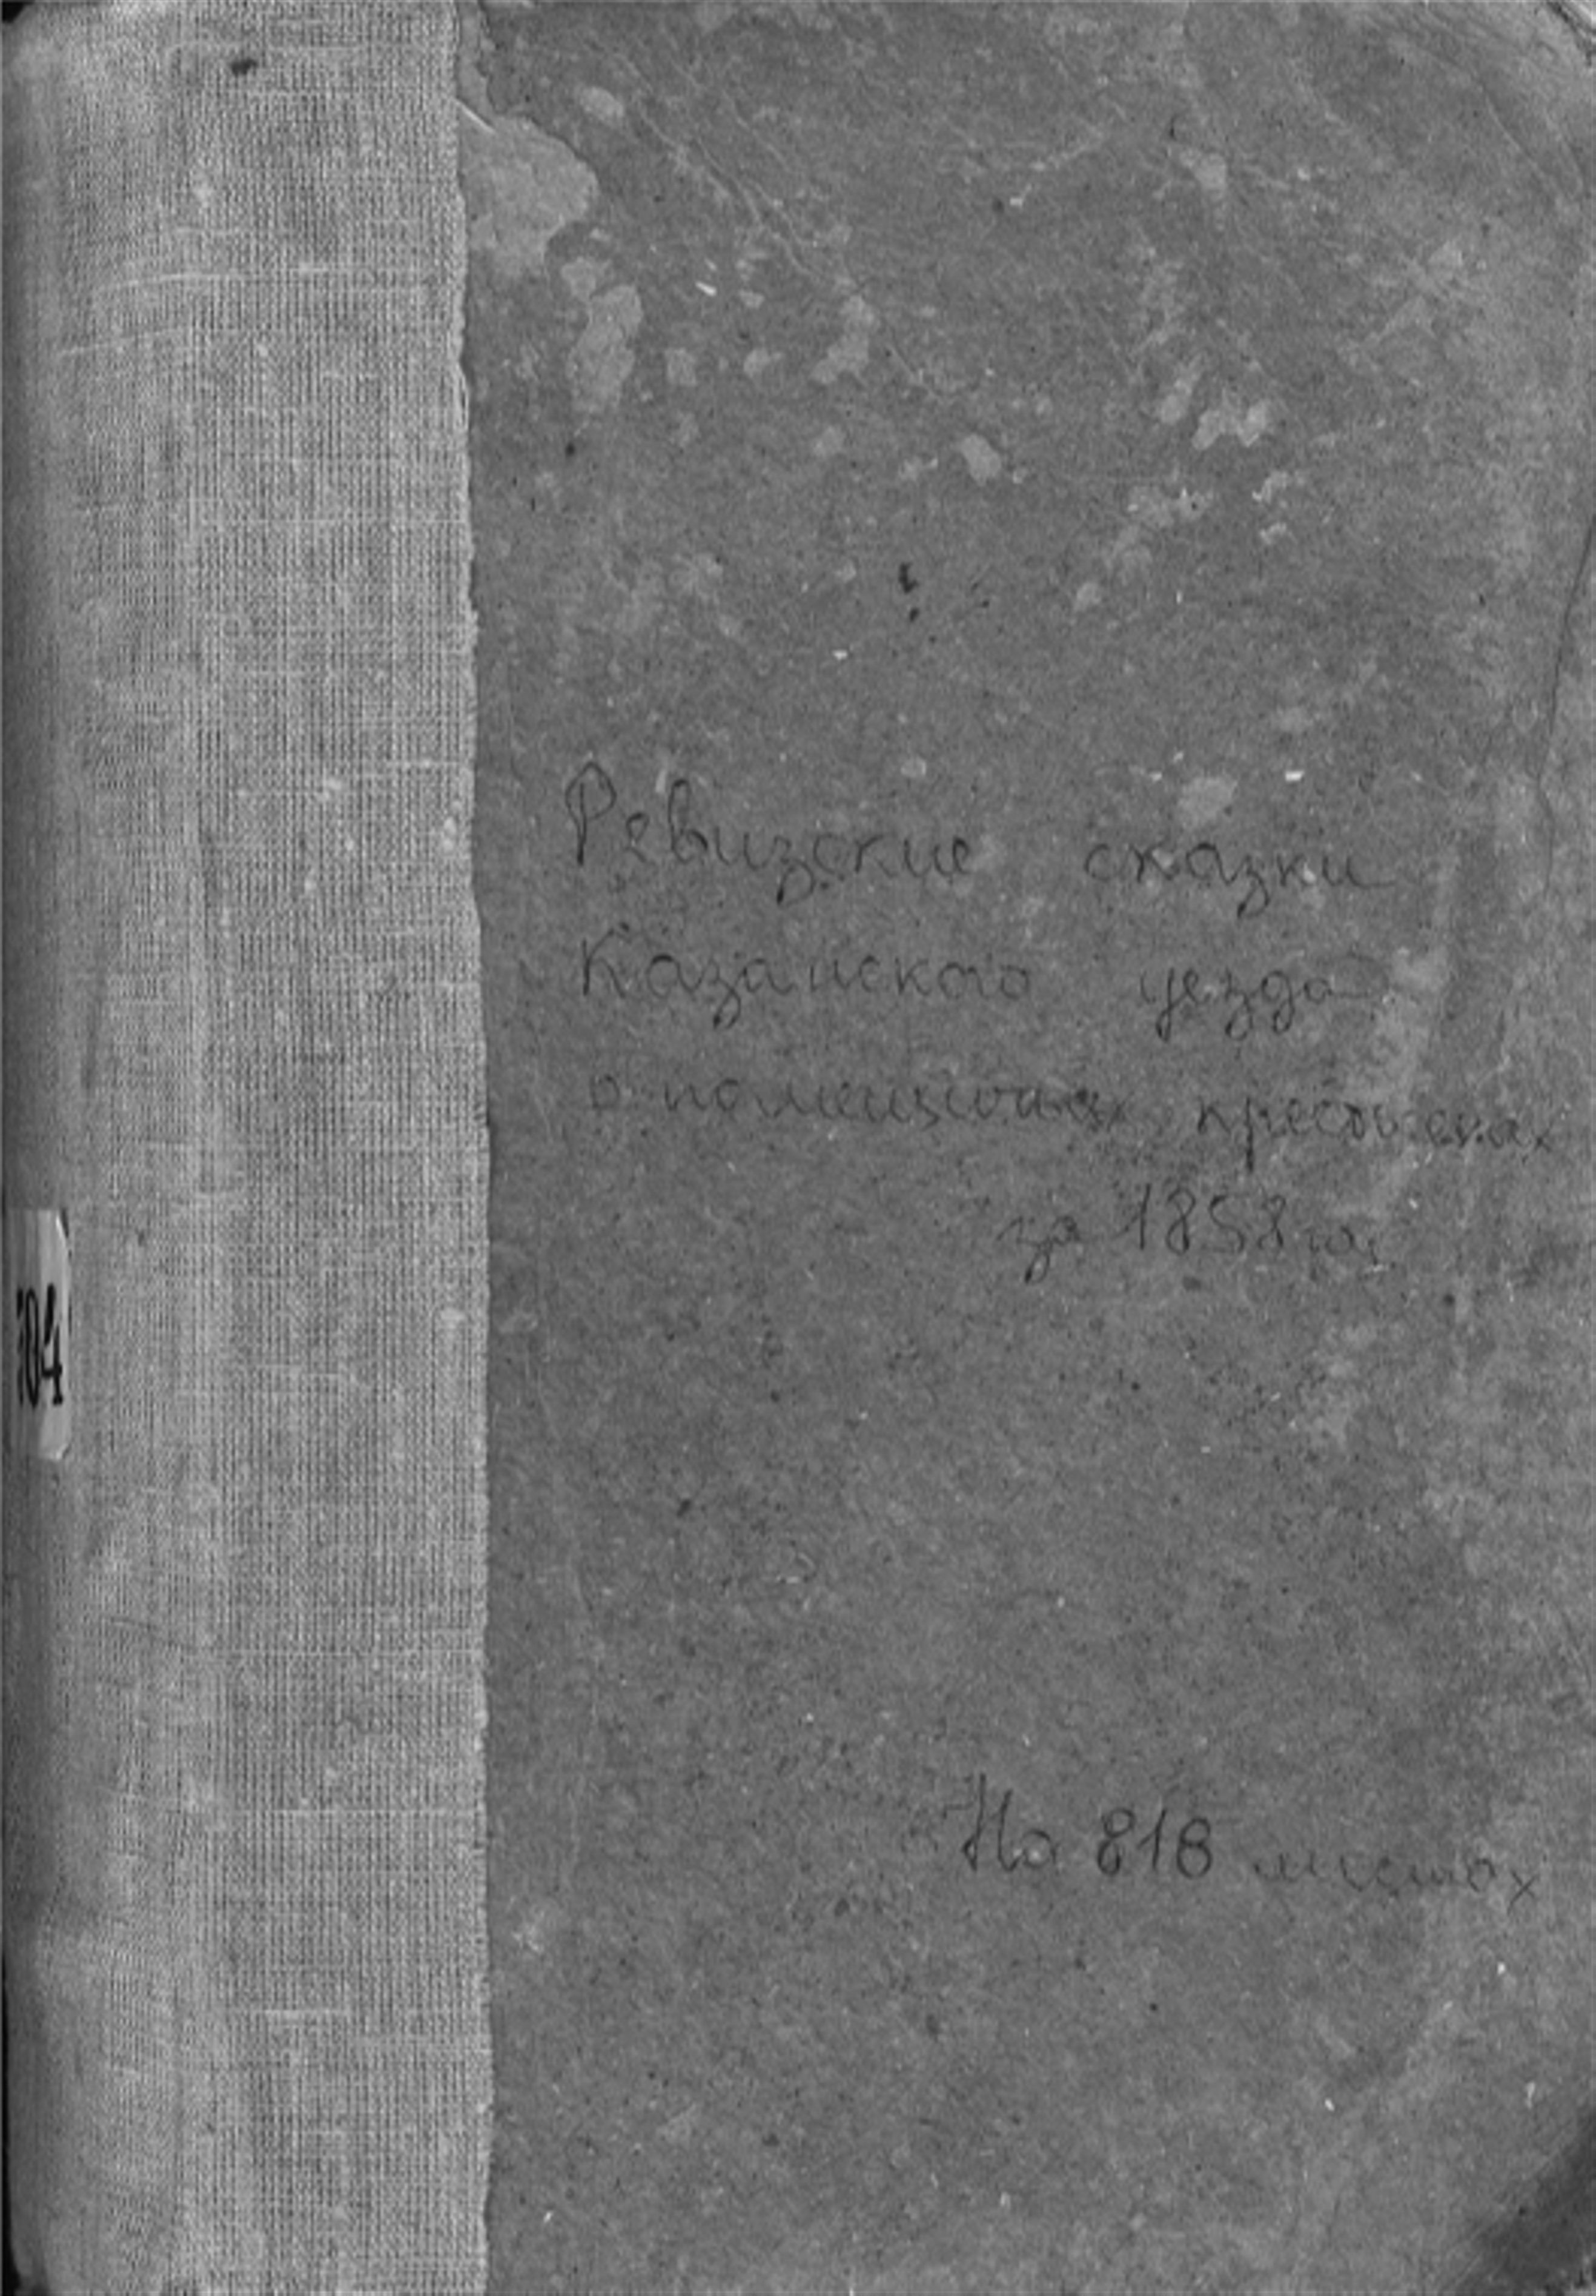 Ревизские сказки
Казанского уезда
о помещичьих крестьянах
за 1858 год
104
На 818 листах